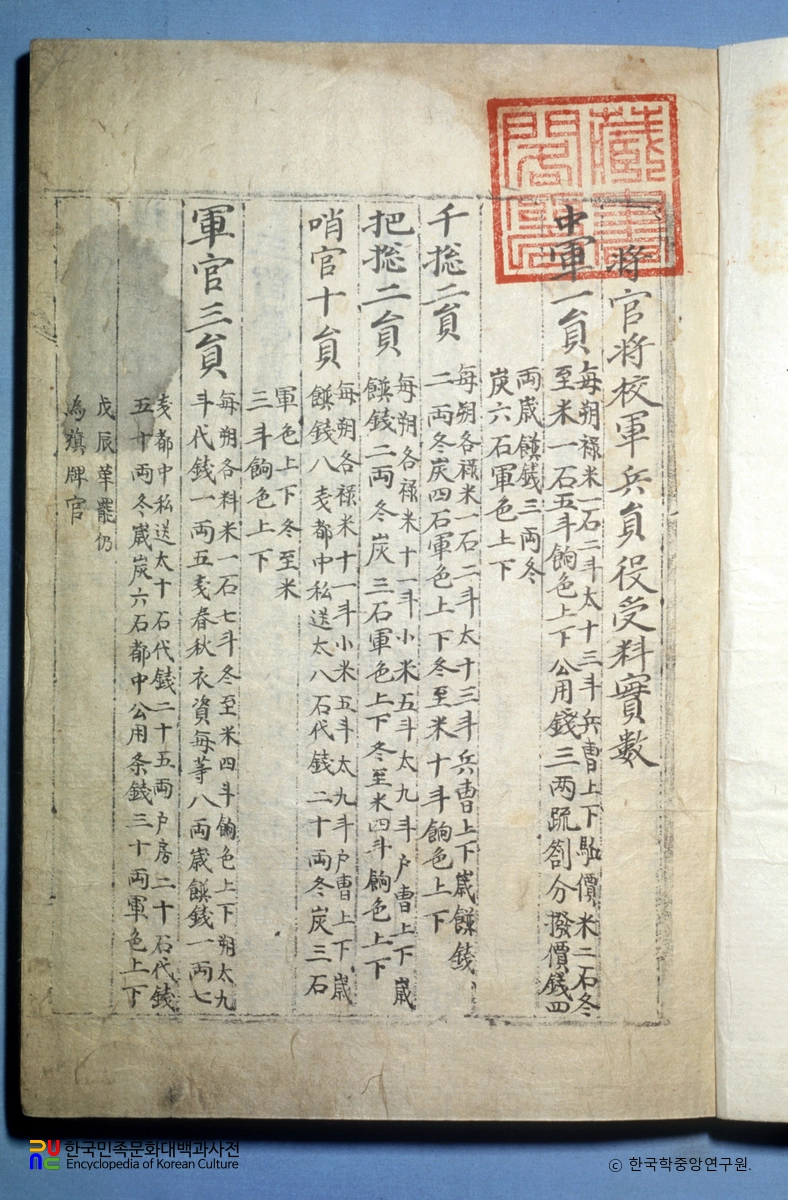 藏書閣印
將官將校軍兵員役受料實數
中軍一員
每朔祿米一石二斗太十三斗兵曹上下駄價米二石冬
至米一石五斗餉色上下公用錢三兩疏劄分撥價錢四
兩歲饌錢三兩冬
炭六石軍色上下
千摠二員
每朔各祿米一石二斗太十三斗兵曹上下歲饌錢
二兩冬炭四石軍色上下冬至米十斗餉色上下
把摠二員
每朔各祿米十一斗小米五斗太九斗戶曹上下歲
饌錢二兩冬炭三石軍色上下冬至米四斗餉色上下
哨官十員
每朔各祿米十一斗小米五斗太九斗戶曹上下歲
饌錢八戔都中私送太八石代錢二十兩冬炭三石
軍色上下冬至米
三斗餉色上下
軍官三員
每朔各料米一石七斗冬至米四斗餉色上下朔太九
斗代錢一兩五戔春秋衣資每等八兩歲饌錢一兩七
戔都中私送太十石代錢二十五兩戶房二十石代錢
五十兩冬歲炭六石都中公用条錢三十兩軍色上下
戊辰革罷仍
為旗牌官
한국민족문화대백과사전
Encyclopedia of Korean Culture
© 한국학중앙연구원.